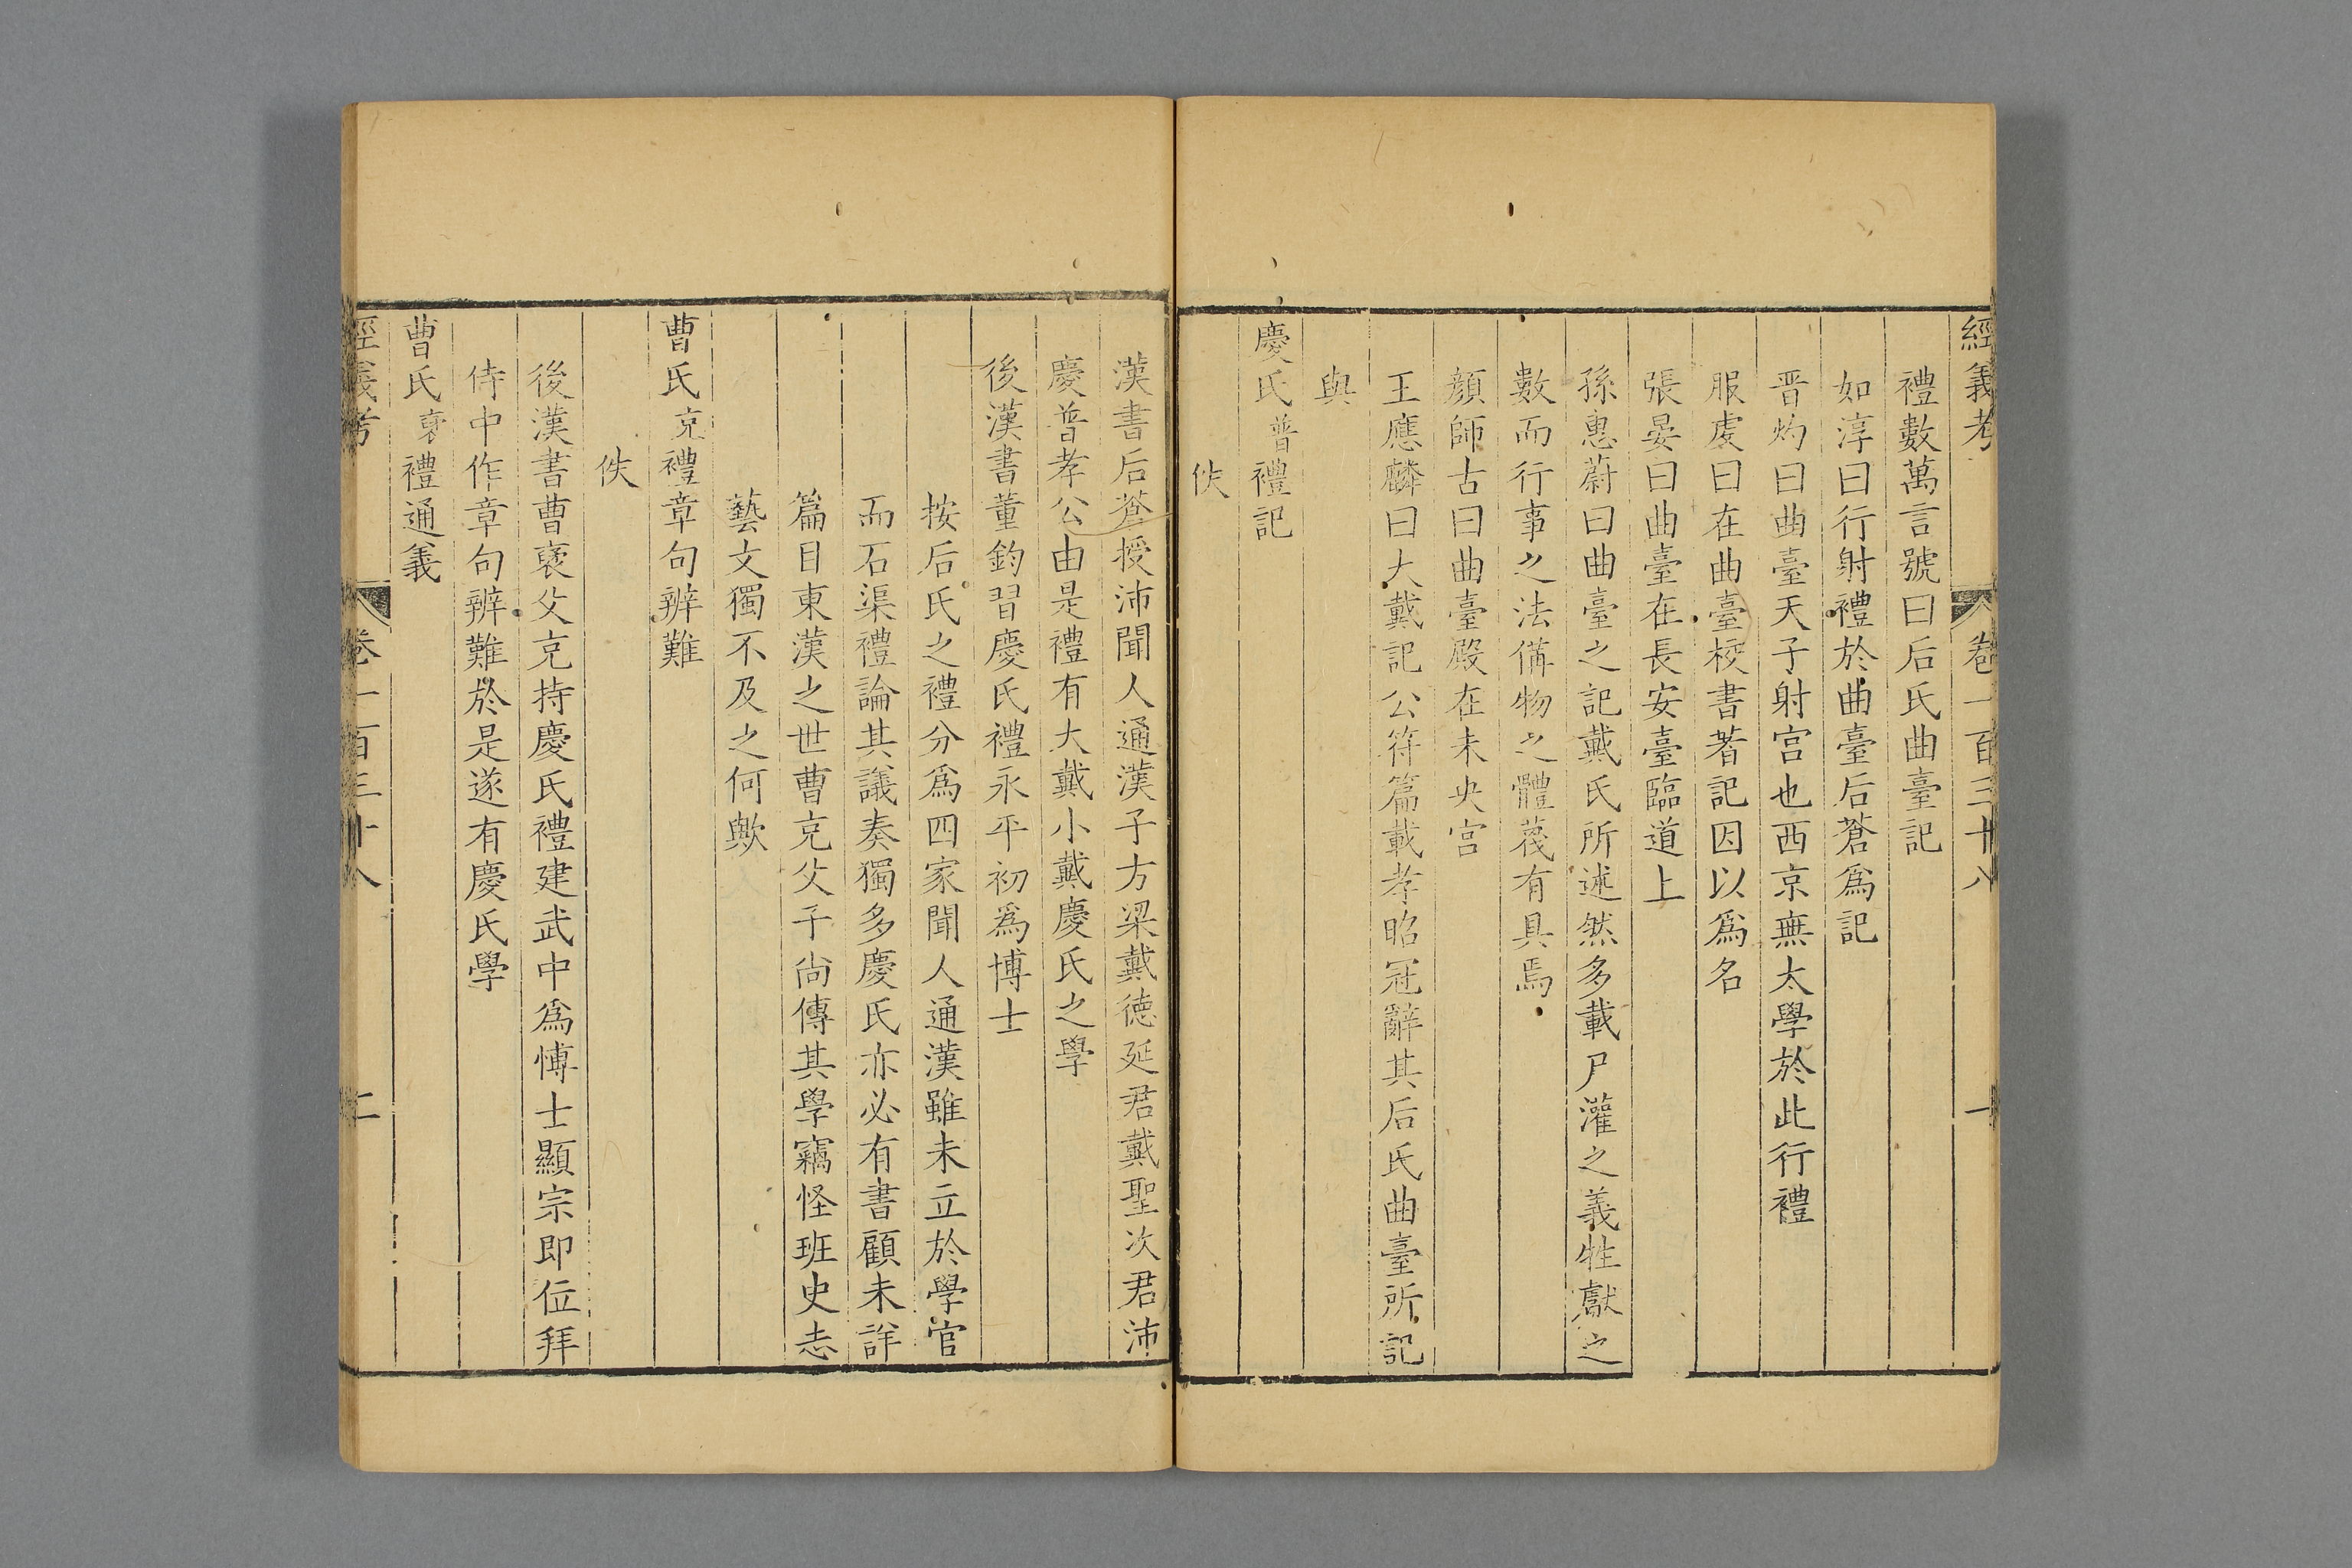 經義考 卷一百三十八 一
禮數萬言號曰后氏曲臺記
如淳曰行射禮於曲臺后蒼爲記
晋灼曰曲臺天子射宫也西京無太學於此行禮
服虔曰在曲臺校書著記因以爲名
張晏曰曲臺在長安臺臨道上
孫惠蔚曰曲臺之記戴氏所述然多載尸灌之義牲獻之
數而行事之法備物之體蔑有具焉
顔師古曰曲臺殿在未央宫
王應麟曰大戴記公符篇載孝昭冠辭其后氏曲臺所記
與
慶氏普禮記
佚
漢書后蒼授沛聞人通漢子方梁戴德延君戴聖次君沛
慶普孝公由是禮有大戴小戴慶氏之學
後漢書董鈞習慶氏禮永平初爲博士
按后氏之禮分爲四家聞人通漢雖未立於學官
而石渠禮論其議奏獨多慶氏亦必有書顧未詳
篇目東漢之世曹充父子尚傳其學竊怪班史志
藝文獨不及之何歟
曹氏充禮章句辨難
佚
後漢書曹褒父充持慶氏禮建武中爲博士顯宗即位拜
侍中作章句辨難於是遂有慶氏學
曹氏褒禮通義
經義考 卷一百三十八 二